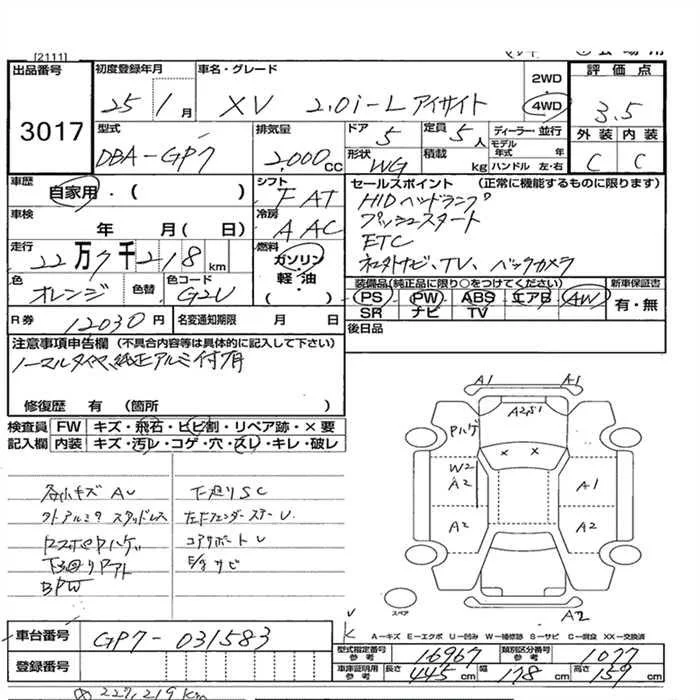 [2111]
出品番号 3017
初度登録年月 25 1月
車名・グレード XV 2.0i-L アイサイト
2WD 4WD
評価点 3.5
外装 C 内装 C
型式 DBA-GP7
排気量 2,000CC
ドア 5
定員 5人
ディーラー・並行
モデル年式 年
形状 WG
積載 kg
ハンドル 左・右
車歴 自家用・( )
シフト FAT
セールスポイント (正常に機能するものに限ります)
HIDヘッドランプ
プッシュスタート
ETC
社外ナビ、TV、バックカメラ
車検 年 月( 日)
冷房 AAC
走行 22万7千218km
燃料 ガソリン 軽・油 ( )
色 オレンジ 色替 色コード G2U
装備品(純正品に限り○をつけてください) 新車保証書
PS PW ABS エアB AW 有・無
SR ナビ TV
R券 12030円
名変通知期限 月 日
後日品
注意事項申告欄 (不具合内容等は具体的に記入して下さい)
ノーマルタイヤ、純正アルミ付有
修復歴 有 (箇所 )
検査員 FW キズ・飛石・ヒビ割・リペア跡・×要
記入欄 内装 キズ・汚レ・コゲ・穴・スレ・キレ・破レ
各小キズ AU
下廻りSC
スタッドレス
コアサポートU
サビ
BPW
A1 A1
A2,S1
Pハゲ
× ×
W2
A2 A1
A2 A2
スペア
A2
A-キズ E-エクボ U-凹み W-補修跡 S-サビ C-腐食 XX-交換済
車台番号 GP7-031583
登録番号
型式指定番号 参考 16967
類別区分番号 参考 1077
車庫証明用 参考 長さ 445cm 幅 178cm 高さ 159cm
227,219Km